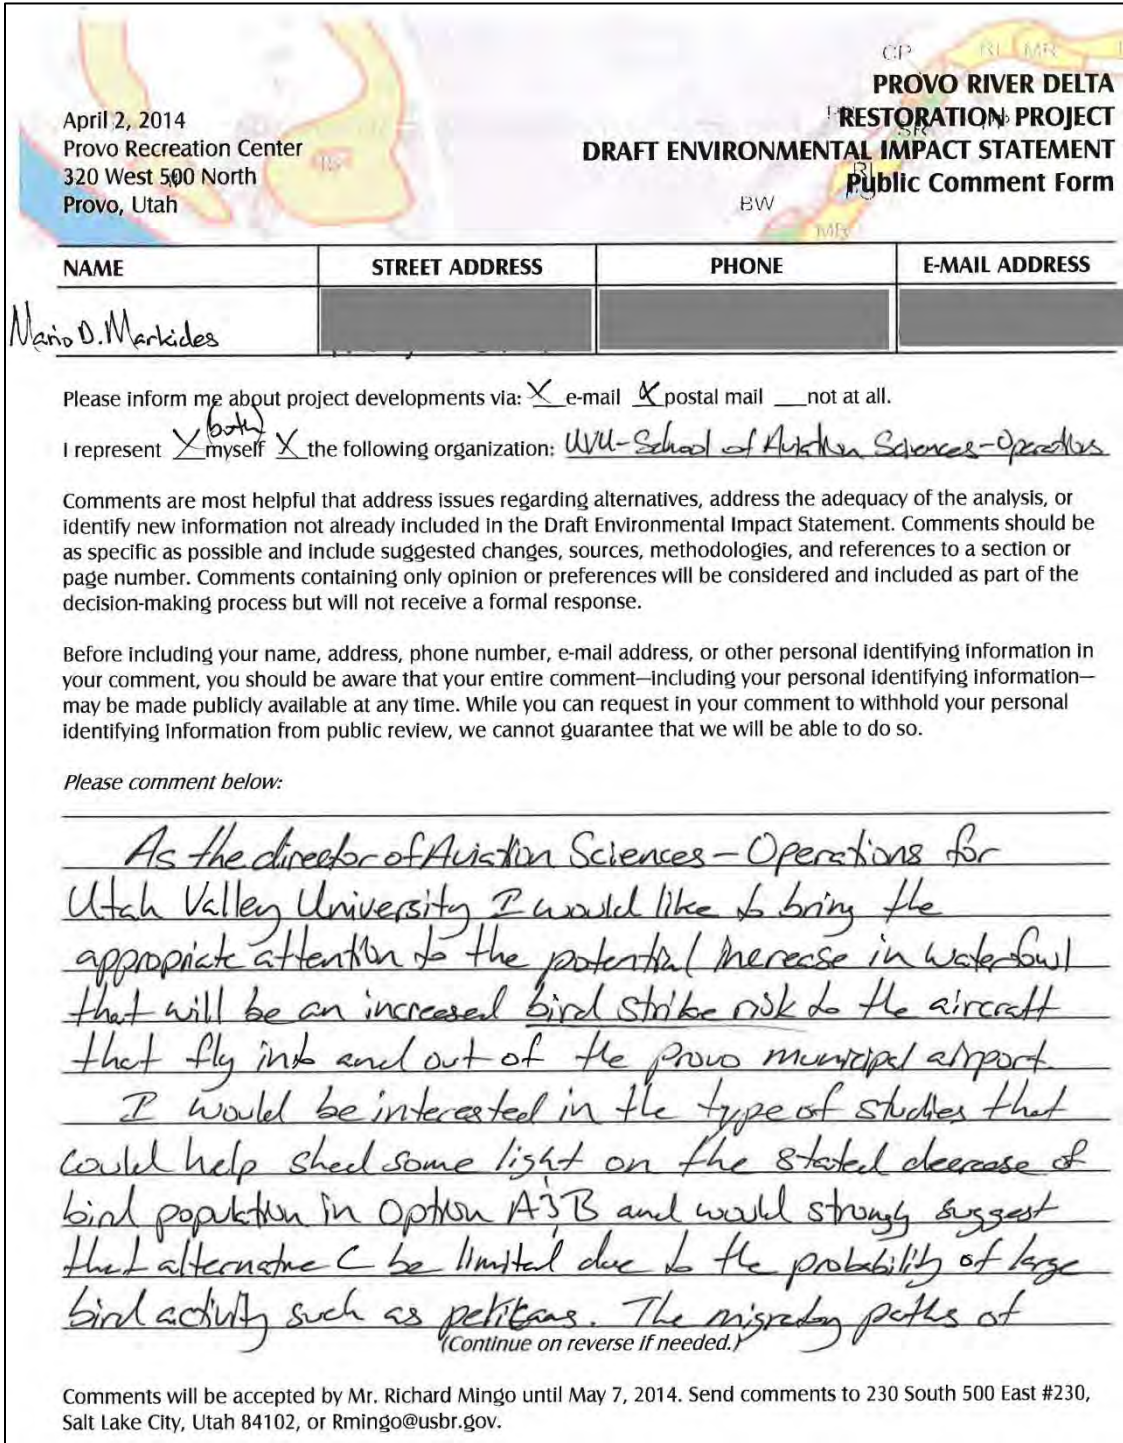 CP RI MR
PROVO RIVER DELTA
April 2, 2014 RESTORATION PROJECT
Provo Recreation Center DRAFT ENVIRONMENTAL IMPACT STATEMENT
320 West 500 North Public Comment Form
Provo, Utah BW
MR
NAME STREET ADDRESS PHONE E-MAIL ADDRESS
Mario D. Markides
Please inform me about project developments via: X e-mail X postal mail __not at all.
(both)
I represent X myself X the following organization: UVU-School of Aviation Sciences-Operations
Comments are most helpful that address issues regarding alternatives, address the adequacy of the analysis, or
identify new information not already included in the Draft Environmental Impact Statement. Comments should be
as specific as possible and include suggested changes, sources, methodologies, and references to a section or
page number. Comments containing only opinion or preferences will be considered and included as part of the
decision-making process but will not receive a formal response.
Before including your name, address, phone number, e-mail address, or other personal identifying information in
your comment, you should be aware that your entire comment—including your personal identifying information—
may be made publicly available at any time. While you can request in your comment to withhold your personal
identifying information from public review, we cannot guarantee that we will be able to do so.
Please comment below:
As the director of Aviation Sciences - Operations for
Utah Valley University I would like to bring the
appropriate attention to the potential increase in waterfowl
that will be an increased bird strike risk to the aircraft
that fly into and out of the provo municipal airport.
I would be interested in the type of studies that
could help shed some light on the stated decrease of
bird population in option A & B and would strongly suggest
that alternative C be limited due to the probability of large
bird activity such as pelicans. The migratory paths of
(Continue on reverse if needed.)
Comments will be accepted by Mr. Richard Mingo until May 7, 2014. Send comments to 230 South 500 East #230,
Salt Lake City, Utah 84102, or Rmingo@usbr.gov.